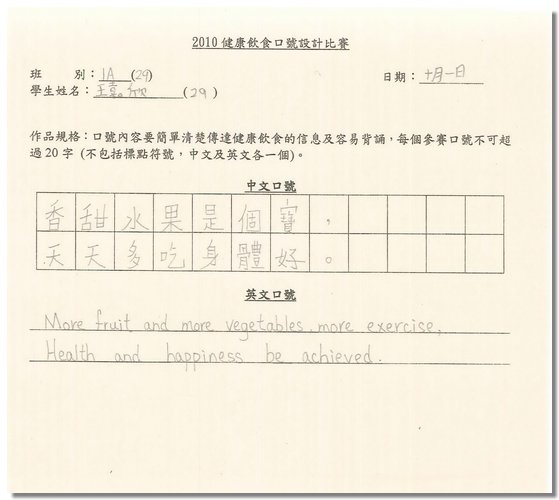 2010 健康飲食口號設計比賽
班 別：1A (29)
日期：十月一日
學生姓名：王嘉欣 (29)
作品規格：口號內容要簡單清楚傳達健康飲食的信息及容易背誦，每個參賽口號不可超
過 20 字 (不包括標點符號，中文及英文各一個)。
中文口號
香甜水果是個寶，
天天多吃身體好。
英文口號
More fruit and more vegetables, more exercise,
Health and happiness be achieved.